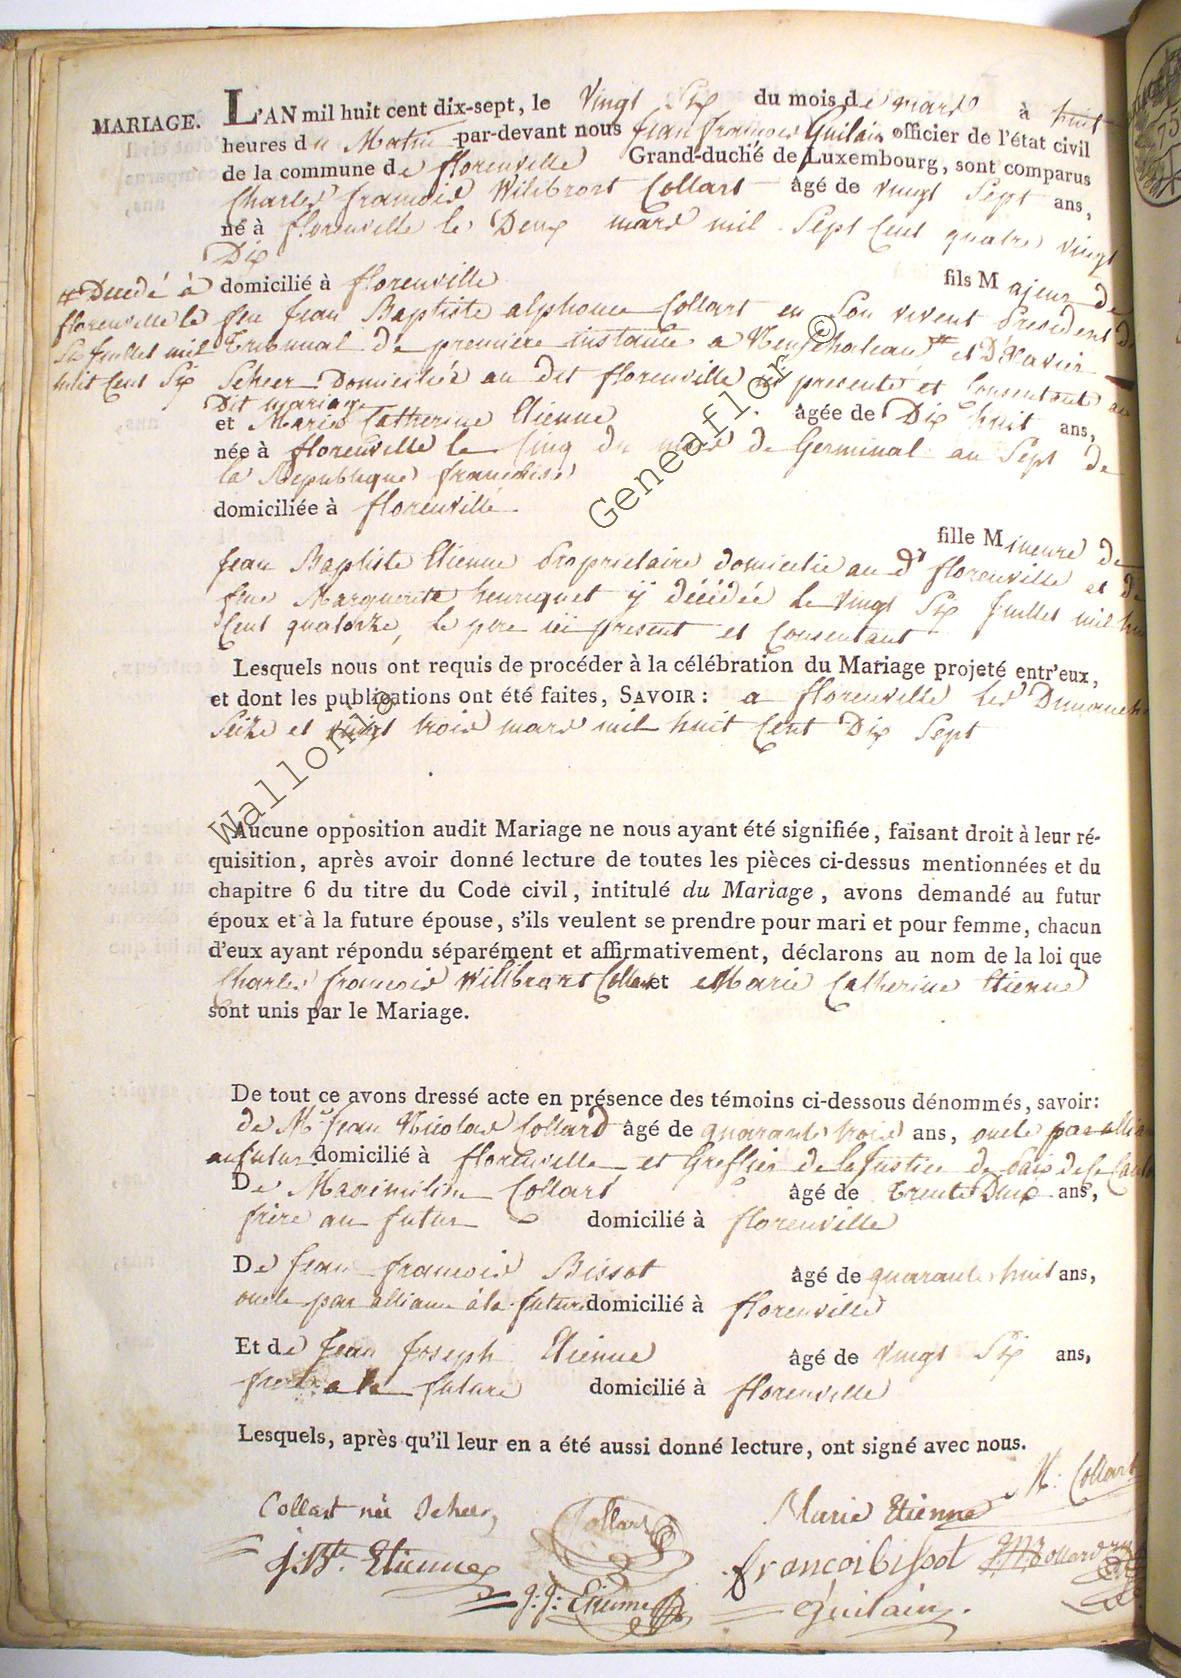 MARIAGE. L'AN mil huit cent dix-sept, le Vingt Six du mois de mars à huit
heures du Matin par-devant nous Jean françois Guilain officier de l'état civil
de la commune de florenville Grand-duché de Luxembourg, sont comparus
Charles françois Wilibrort Collart âgé de vingt Sept ans,
né à florenville le Deux mars mil Sept Cent quatre vingt
Dix
domicilié à florenville fils Majeur de
feu Jean Baptiste alphonse Collart en Son vivent President du
Tribunal de premiere instance a Neufchateau # et D'
Scheer Domiciliés au dit florenville ici presente et Consentant au
Dit mariage
# Decedé à
florenville le
Six Juillet mil
huit Cent Six
et Marie Catherine Etienne âgée de Dix huit ans,
née à florenville le Cinq du mois de Germinal an Sept de
la Republique française
domiciliée à florenville
fille Mineure de
Jean Baptiste Etienne Proprietaire domicilie au dt florenville et de
feue Marguerite henriquet y décédée le Vingt Six Juillet mil huit
Cent quatorze, le pere ici present et Consentant
Lesquels nous ont requis de procéder à la célébration du Mariage projeté entr'eux,
et dont les publications ont été faites, SAVOIR: a florenville les Dimanches
Seize et vingt trois mars mil huit Cent Dix Sept
Aucune opposition audit Mariage ne nous ayant été signifiée, faisant droit à leur ré-
quisition, après avoir donné lecture de toutes les pièces ci-dessus mentionnées et du
chapitre 6 du titre du Code civil, intitulé du Mariage, avons demandé au futur
époux et à la future épouse, s'ils veulent se prendre pour mari et pour femme, chacun
d'eux ayant répondu séparément et affirmativement, déclarons au nom de la loi que
Charles françois Willibrort Collart et Marie Catherine Etienne
sont unis par le Mariage.
De tout ce avons dressé acte en présence des témoins ci-dessous dénommés, savoir:
de Mr Jean Nicolas Collard âgé de quarante trois ans, oncle par alliance
au futur domicilié à florenville et Greffier de la Justice de Paix de Ce Canton
De Maximilien Collart âgé de Trente Deux ans,
frère au futur domicilié à florenville
De Jean françois Bissot âgé de quarante huit ans,
oncle par alliance à la future domicilié à florenville
Et de Jean Joseph Etienne âgé de Vingt Six ans,
frere a la future domicilié à florenville
Lesquels, après qu'il leur en a été aussi donné lecture, ont signé avec nous.
Collart née Scheer Collart Marie Etienne M: Collart
J: Bte Etienne françoi bissot Collard
J: J: Etienne Guilain
Wallonia Geneaflor ©